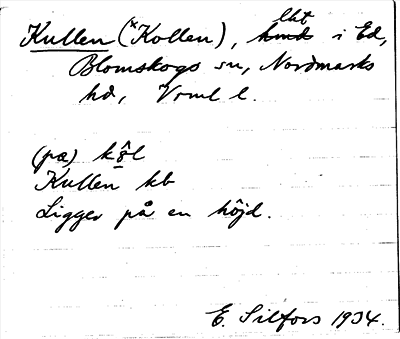 Kullen (*Kollen), lht i Ed,
Blomskogs sn, Nordmarks
hd, Vrml l.
(pa) kô̱l
Kullen kb
Ligger på en höjd.
E. Silfors 1934.